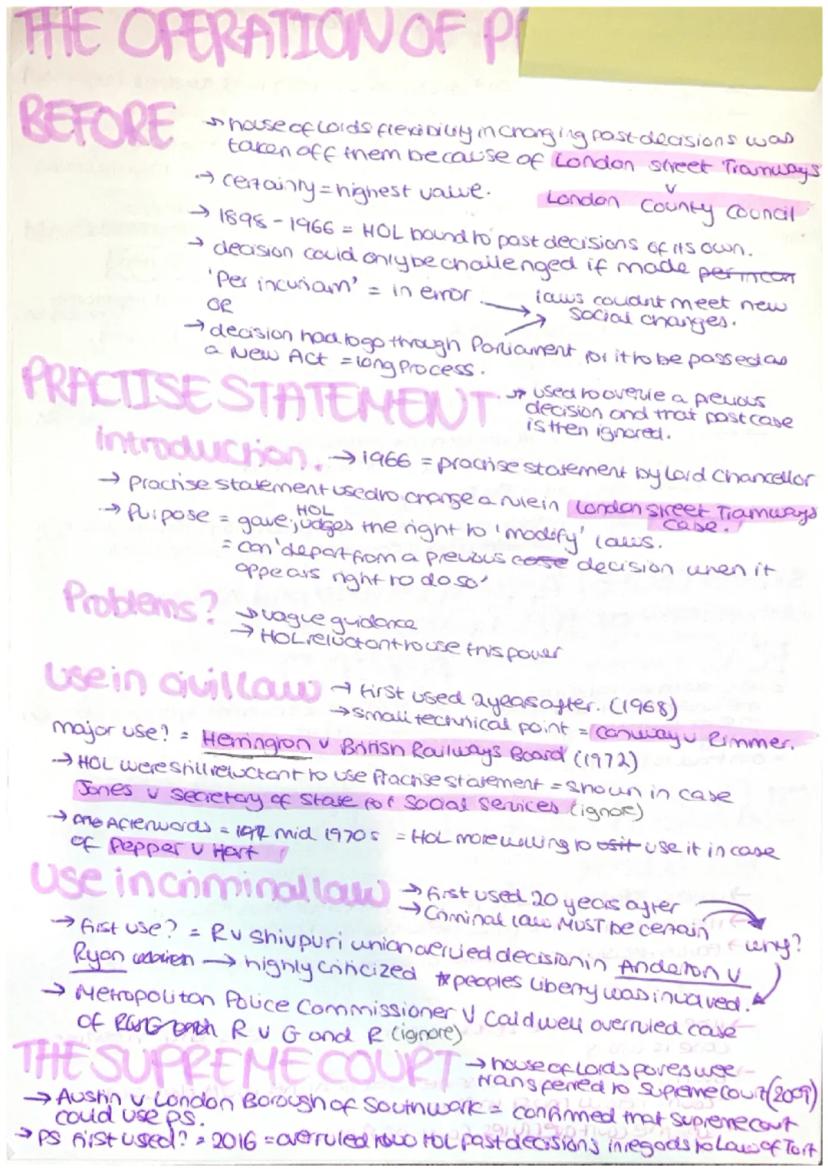 THE OPERATION OF P
BEFORE
→ house of Lords flexibility in changing past decisions was
taken off them because of London street Tramways
v
London County Council
→ certainty = highest value.
→ 1898 - 1966 = HOL bound to past decisions of its own.
→ decision could only be challenged if made per incuri
'Per incuriam' = in error
laws couldnt meet new
social changes.
OR
→ decision had to go through Parliament for it to be passed as
a New Act = long Process.
PRACTISE STATEMENT
→ used to overule a previous
decision and that past case
is then ignored.
introduction.
→ 1966 = practise statement by Lord Chancellor
→ practise statement used to change a rule in London Street Tramways
case.
→ Purpose = gave HOL judges the right to 'modify' laws.
= can 'depart from a previous case decision when it
appears right to do so'
Problems?
→ vague guidance
→ HOL reluctant to use this power
use in civil law
→ first used 2 years after. (1968)
→ small technical point = Conway v Rimmer.
major use? = Herrington v British Railways Board (1972)
→ HOL were still reluctant to use Practise statement = shown in case
Jones v Secretary of State for Social Services (ignore)
→ Afterwards = mid 1970s = HOL more willing to use it in case
of Pepper v Hart
use in criminal law
→ first used 20 years after
→ Criminal law MUST be certain
why?
→ first use? = R v Shivpuri which overruled decision in Anderton v
Ryan → highly criticized * peoples liberty was involved.
→ Metropolitan Police Commissioner v Caldwell overruled case
of R v G and R (ignore)
THE SUPREME COURT
→ house of Lords powers were
transferred to Supreme Court (2009)
→ Austin v London Borough of Southwark = confirmed that supreme court
could use ps.
→ PS first used? = 2016 = overruled two HOL past decisions in regards to Law of Tort